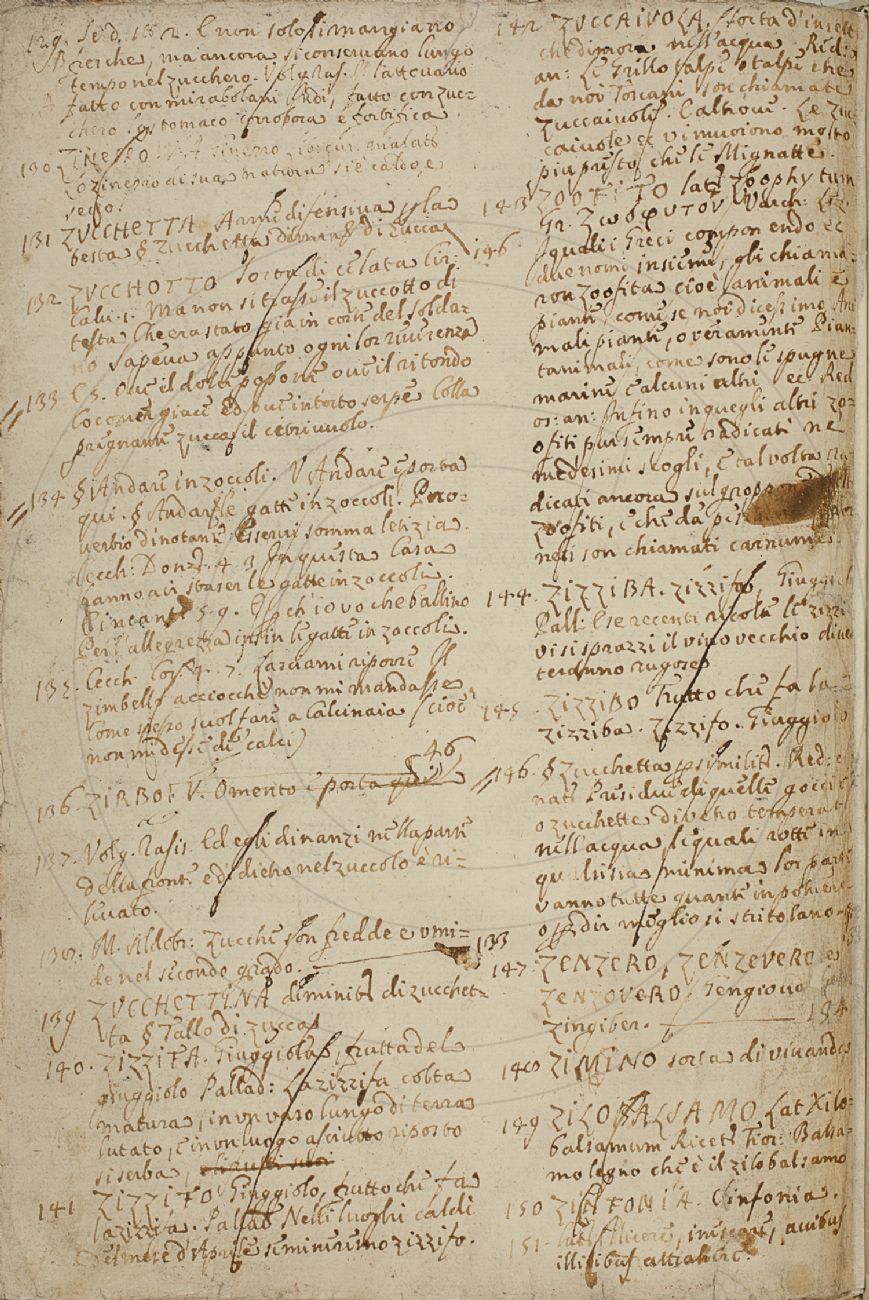 129. Se d. 182. E non solo si mangiano
fresche, ma ancora si conservano lungo
tempo nel zucchero. Volg. Ras. Il lattovario
fatto con mirabolani Indi, fatto con zuc-
chero lo stomaco e fortifica.
130 ZINEPRO. V. A. Ginepro
Lo zinepro di sua natura si è caldo, e
secco.
131 ZUCCHETTA Arme difensiva
testa § Zucchetta dimin. di Zucca
132 ZUCCHOTTO Sorta di celata Cir:
Calv: 1: Ma non si trasse il zuccotto di
testa Che era stato già in corte del solda-
no Sapeva appunto ogni lor riverenza
133. C 5. Ove il dolce popone ove il ritondo
Cocomer giace Ed ove intorto serpe Colla
pregnante zucca il cetriuolo.
134 § Andare in zoccoli. V. Andare e porta
qui. § Andarsele gatte in zoccoli. Pro-
verbio dinotante Esservi somma letizia.
Cecch: Donz. 4. 3 In questa Casa
hanno a ir stasera le gatte in zoccoli.
Incant. 5. 9. ch' io vo che ballino
Per l'allegrezza insin le gatte in zoccoli.
135. Cecch. 4. 7. Lasciami riporre Il
zimbello acciocchè non mi mandasse
Come spesso suol fare a Calcinaia (cioè
non mi desse de' calci)
46
136. ZIRBO V. Omento e porta qui
137. Volg. Rasis. Ed egli dinanzi nella parte
della fronte e di dietro nel zuccolo è ri-
levato.
138. M. Aldobr: Zucche son fredde e umi-
de nel secondo grado.
133
139 ZUCCHETTINA diminit. di zucchet-
ta § Tallo di zucca
140. ZIZZIFA. Giuggiola, frutta del
giuggiolo Pallad: La zizzifa colta
matura, in un vaso lungo di terra
lutato, e in un luogo asciutto riposto
si serba,
141 ZIZZIFO Giuggiolo, frutto che fa
la zizziba. Pallad Nelli luoghi caldi
del mese d'Aprile semineremo zizzifo.
142 ZUCCAIUOLA. Sorta d'insett
che dimora nell'acqua, Red:
an: Le Grillo talpe o talpe che
da noi Toscani son chiamate
Zuccaiuole. E altrove. Le zuc
caiuole ec vi muoiono molto
più presto che le Mignatte.
143 ZOOFITO lat. Zoophytum
Gr. Ζωόφυτον Varch: Lez.
146
I quali i Greci componendo ec
due nomi insieme, gli chiama-
ron zoofita cioè animali e
piante, come se noi dicessimo Ani
mali piante, o veramente Pian-
tanimali, come sono le spugne
marine e alcuni altri, ec Red
os: an: Infino in quegli altri zo-
ofiti pur sempre radicati ne
medesimi scogli, e talvolta ra
dicati ancora sul groppo
zoofiti, e che da pes
neri son chiamati carnume.
144. ZIZZIBA. zizzifa, Giuggiol
Pall: E se recenti ricolte le zizzi
vi si sprazzi il vino vecchio dive
teranno rugose
145 ZIZZIBO Frutto che fa la
zizziba. Zizzifo. Giuggiolo
146. § Zucchetta p similit. Red: e
nat. Residui di quelle goccie
o zucchette di vetro temperat
nell'acqua le quali rotte in
qualsisia minima lor parte
vanno tutte quante in polvere
o p dir meglio si stritolano
147. ZENZERO, ZENZEVERO e
ZENZOVERO, Gengiovo
Zingiber. 134
148 ZIMINO sorta di vivanda
149 ZILOBALSAMO Lat Xilo-
balsamum Ricett. Fior: Balsa-
mo legno che è il zilobalsamo
150 ZINFONIA. Sinfonia.
151. lat: Allicere, inescare, avibus
illicibus attrahere.